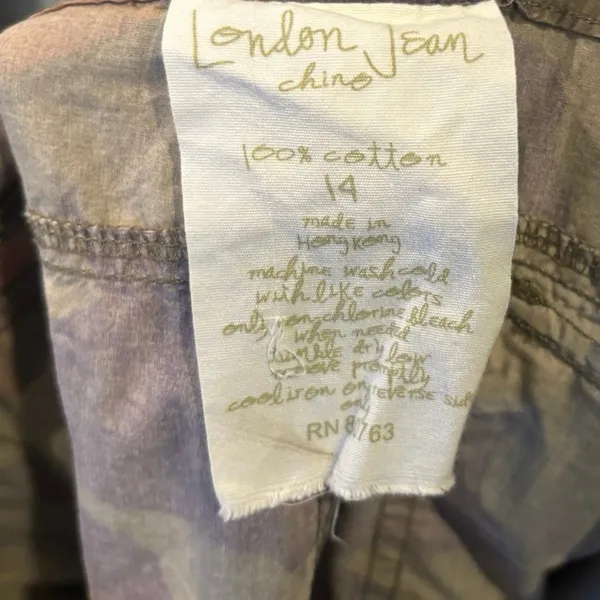 London Jean
chino
100% cotton
14
made in
Hong Kong
machine wash cold
with like colors
only non-chlorine bleach
when needed
tumble dry low
promptly
cool iron on reverse side
RN 763